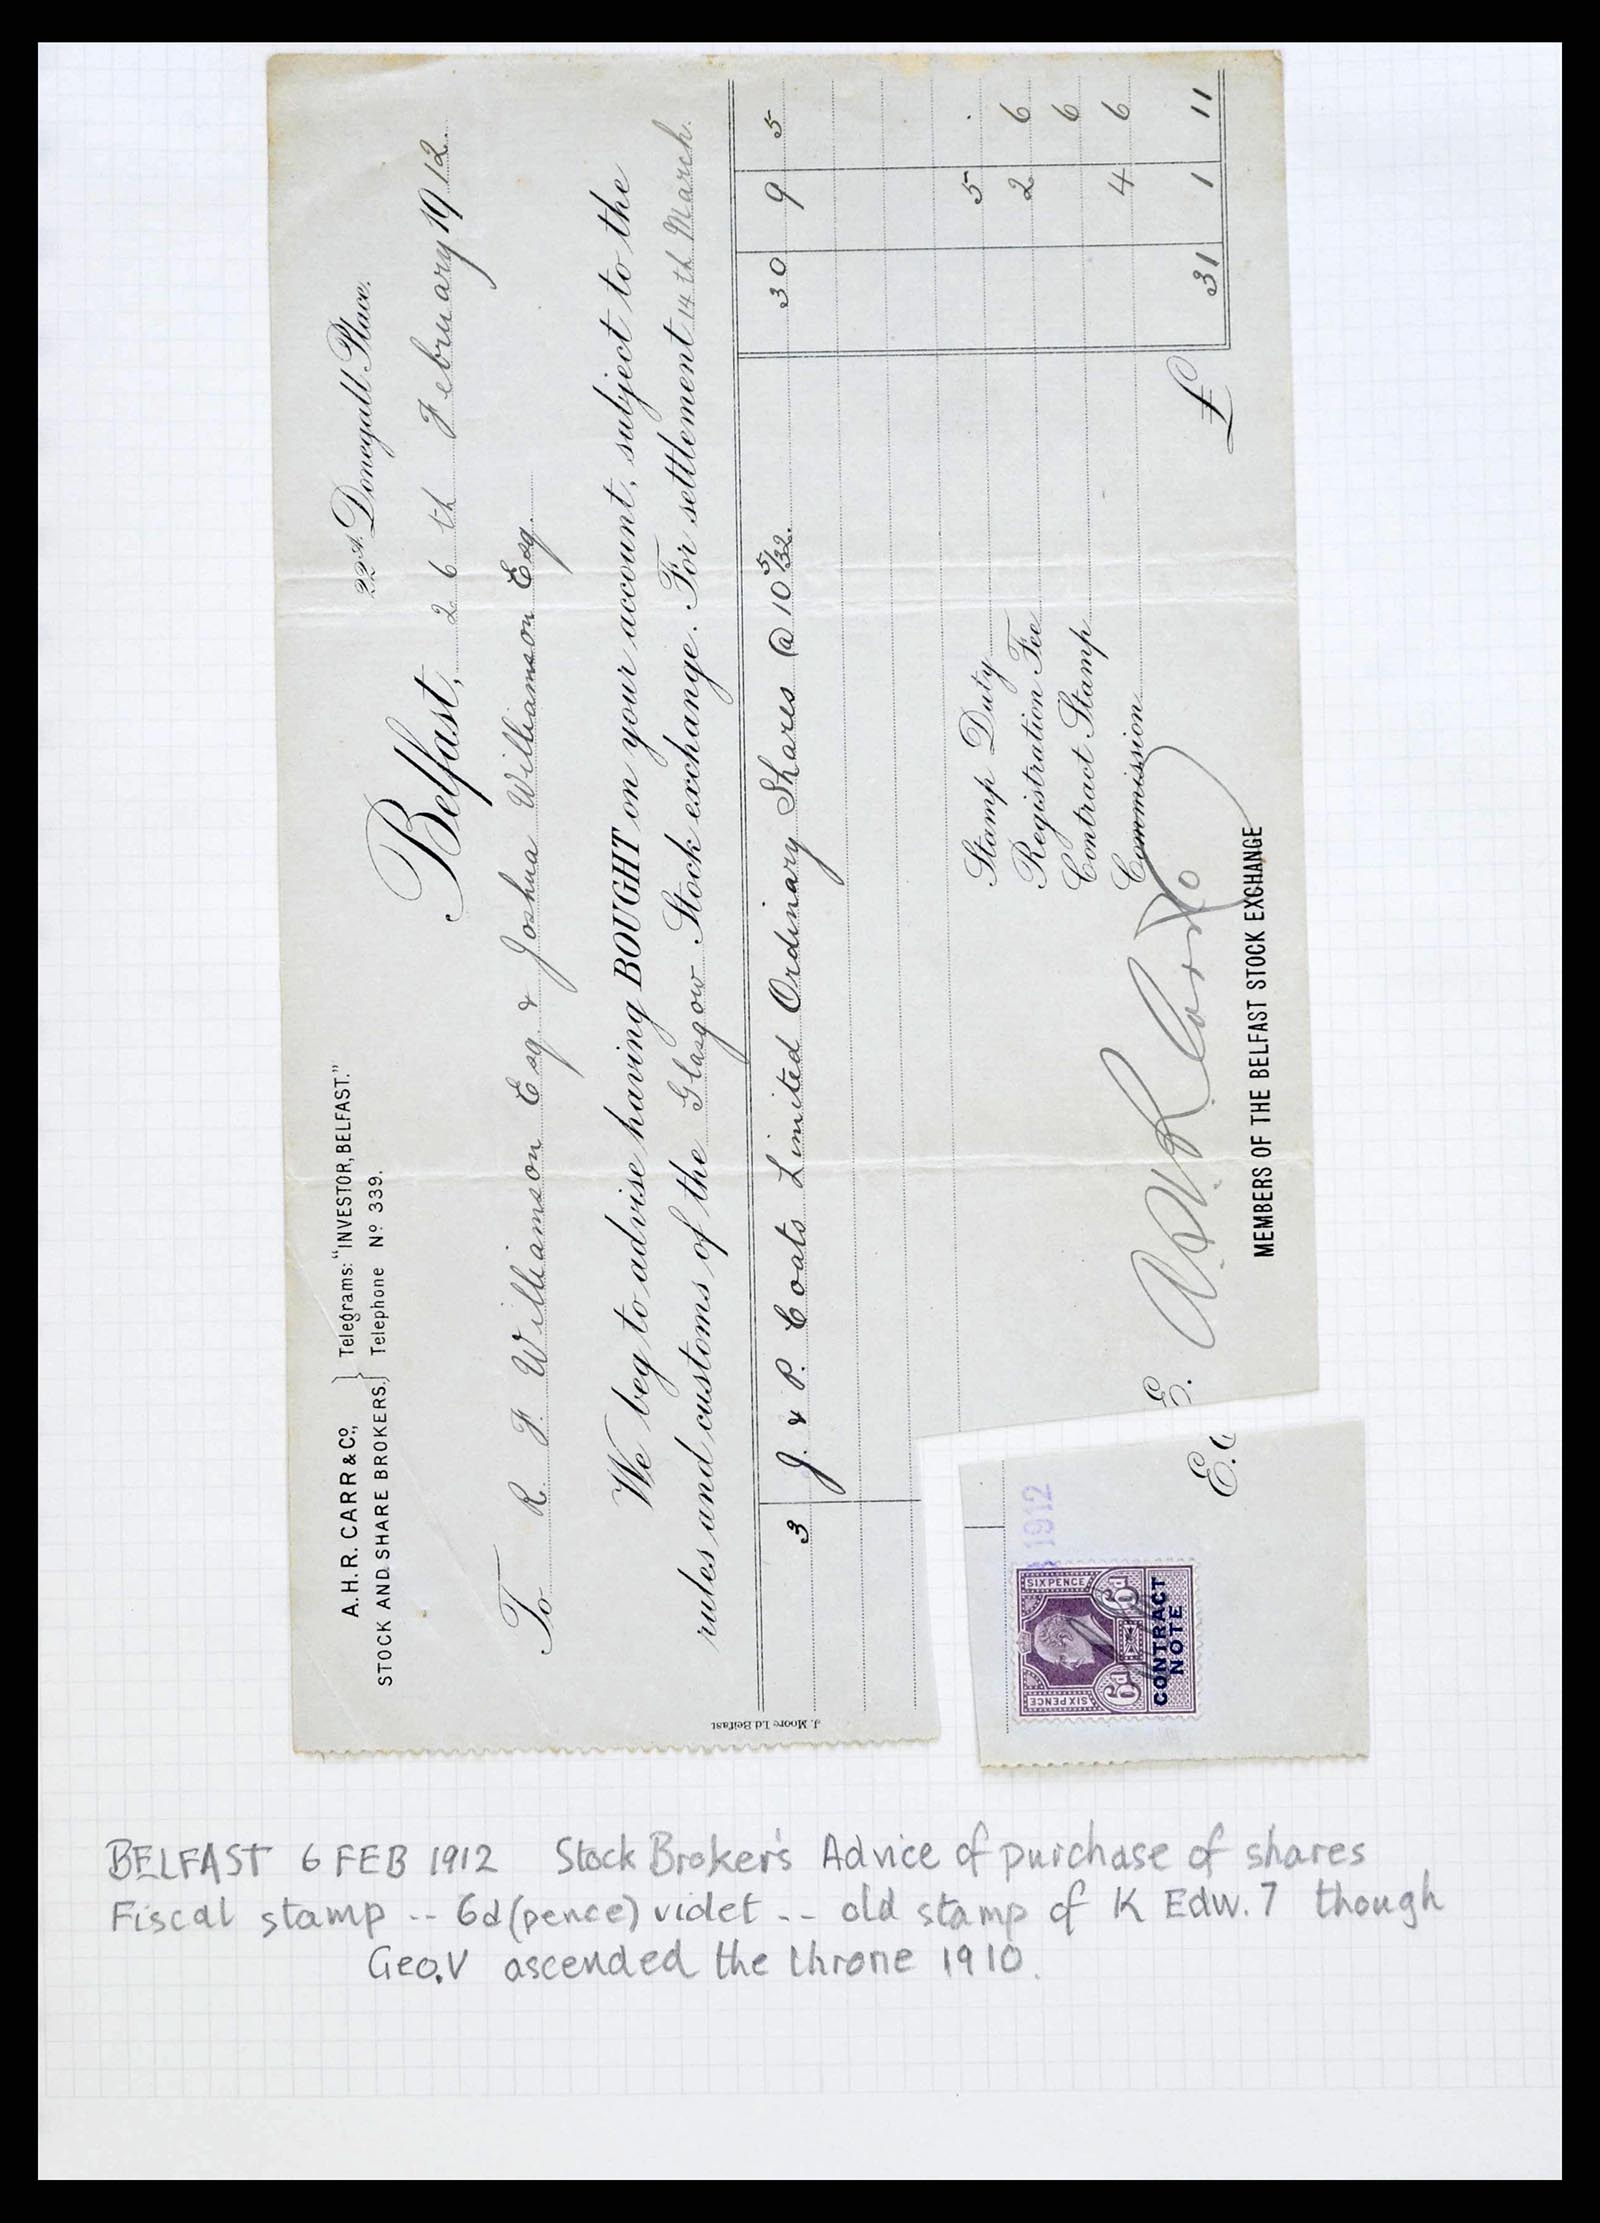 A.H.R. CARR & Co., Telegrams: "INVESTOR, BELFAST."
STOCK AND SHARE BROKERS. Telephone No 339.
22A. Donegall Place.
Belfast, 26th February 1912.
To R. F. Williamson Esq & Joshua Williamson Esq.
We beg to advise having BOUGHT on your account, subject to the
rules and customs of the Glasgow Stock exchange. For settlement 14th March.
3 J. & P. Coats Limited Ordinary Shares @ 10 5/32. 30 9 5
Stamp Duty 5 .
Registration Fee 2 6
Contract Stamp 6
Commission 4 6
£ 31 1 11
E.
A.H.R. Carr & Co
MEMBERS OF THE BELFAST STOCK EXCHANGE
J. Moore Ld Belfast
1912
SIXPENCE
SIXPENCE
6d 6d
CONTRACT
NOTE
BELFAST 6 FEB 1912 Stock Broker's Advice of purchase of shares
Fiscal stamp -- 6d (pence) violet -- old stamp of K Edw. 7 though
Geo.V ascended the throne 1910.